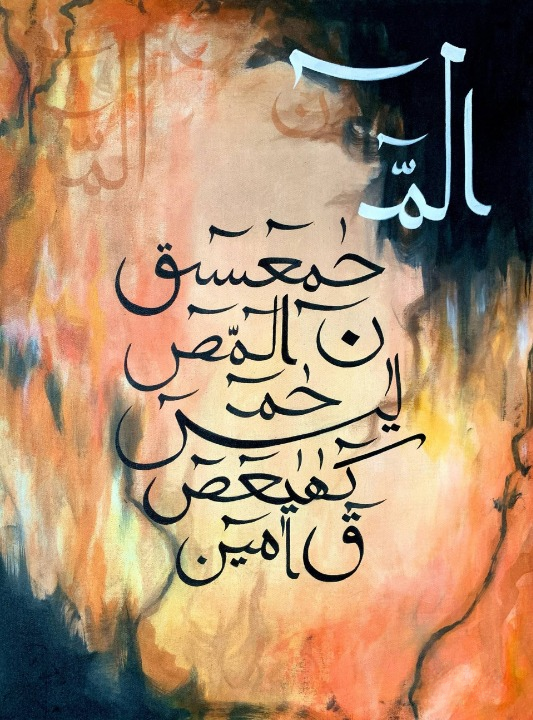 الٓمّٓ
حٰمٓعٓسٓقٓ
نٓ الٓمّٓصٓ
حٰمٓ
يٰسٓ
كٓهٰيٰعٓصٓ
قٓ اٰمين